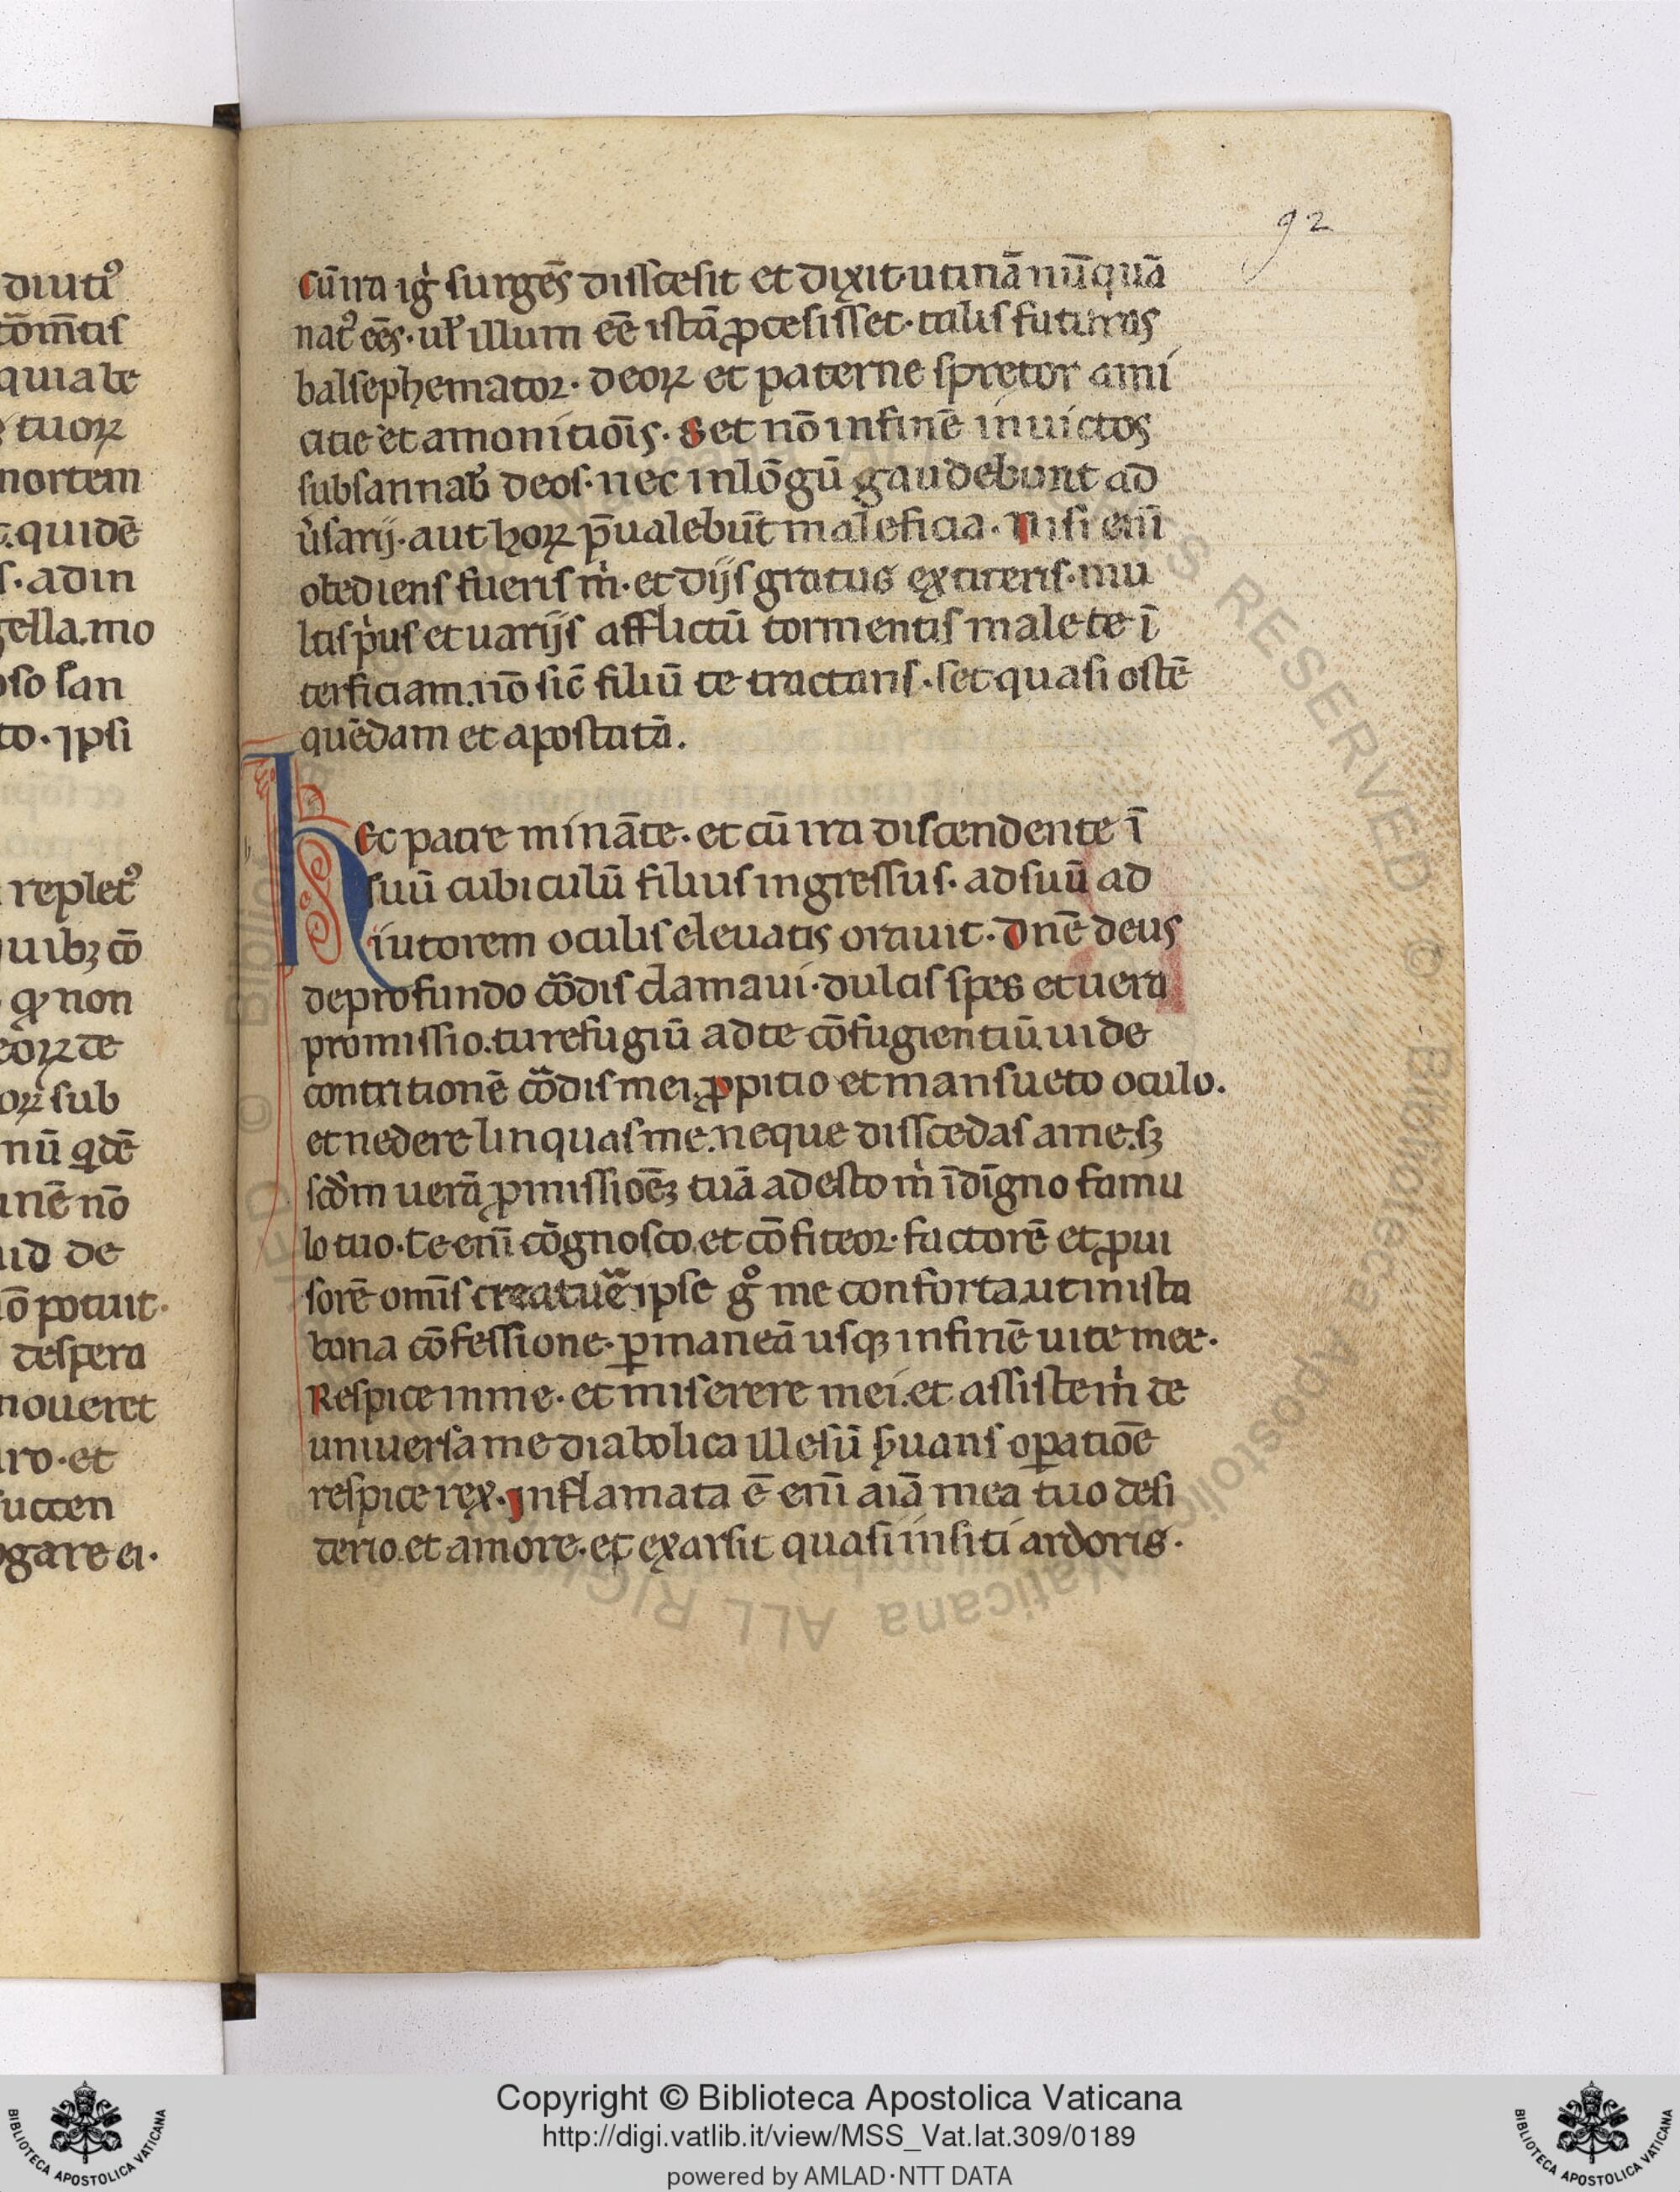 diuti᷒
cōm̄tis
quia be
tuoꝝ
mortem
quidē
s. ad in
gella. mo
so san
to. ipsi
replet᷒
uibꝫ cō
ꝙ non
eoꝝ te
oꝝ sub
nū q̇dē
nē nō
id de
nō potuit.
despera
noueret
ro. et
succen
gare ei.
92
Cū ira iġ surgēs disscesit et dixit utinā nūquā
nat᷒ ēēs. ul̄ illum ēē istā ꝓcesisset. talis futurus
balsephemator. deoꝝ et paterne spretor ami
citie et amonitiōis. Set nō in finē inuictos
subsannab̄ deos. nec in lōgū gaudebunt ad
u̇sarij. aut hoꝝ p̄ualebūt maleficia. Nisi enī
obediens fueris ṁ. et dijs gratus extiteris. mu
ltis pius et uarijs afflictū tormentis male te ī
terficiam. nō sic̄ filiū te tractans. set quasi ostē
quēdam et apostatā.
hEc patre mināte. et cū ira discendente ī
suū cubiculū filius ingressus. ad suū ad
iutorem oculis eleuatis orauit. Dnē deus
de profundo cōdis clamaui. dulcis spes et uera
promissio. tu refugiū ad te cōfugientiū. uide
contritionē cōdis mei. ꝓpitio et mansueto oculo.
et ne derelinquas me. neque disscedas a me. sꝫ
scd̄m uerā ꝓmissiōēꝫ tuā adesto ṁ īdīgno famu
lo tuo. Te enī cōgnosco, et cōfiteor. factorē et ꝓui
sorē omīs creatuē. ipse g̊ me conforta. ut in ista
bona cōfessione. ꝑmaneā usqꝫ in finē uite mee.
Respice in me. et miserere mei. et assiste ṁ te
uniuersa me diabolica illesū s̄uans oꝑatiōe
respice rex. Inflamata ē enī aīā mea tuo desi
derio. et amore. et exarsit quasi in siti ardoris.
Copyright © Biblioteca Apostolica Vaticana
http://digi.vatlib.it/view/MSS_Vat.lat.309/0189
powered by AMLAD·NTT DATA
BIBLIOTECA APOSTOLICA VATICANA
BIBLIOTECA APOSTOLICA VATICANA